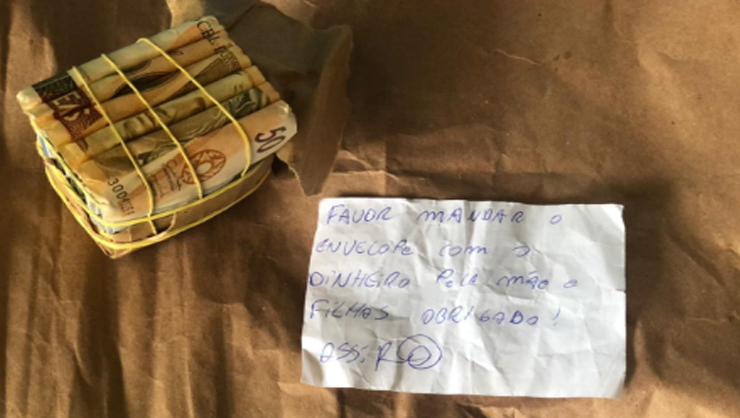 50
FAVOR MANDAR O
ENVELOPE COM O
DINHEIRO PELA MÃO O
FILHAS OBRIGADO!
ASS: R